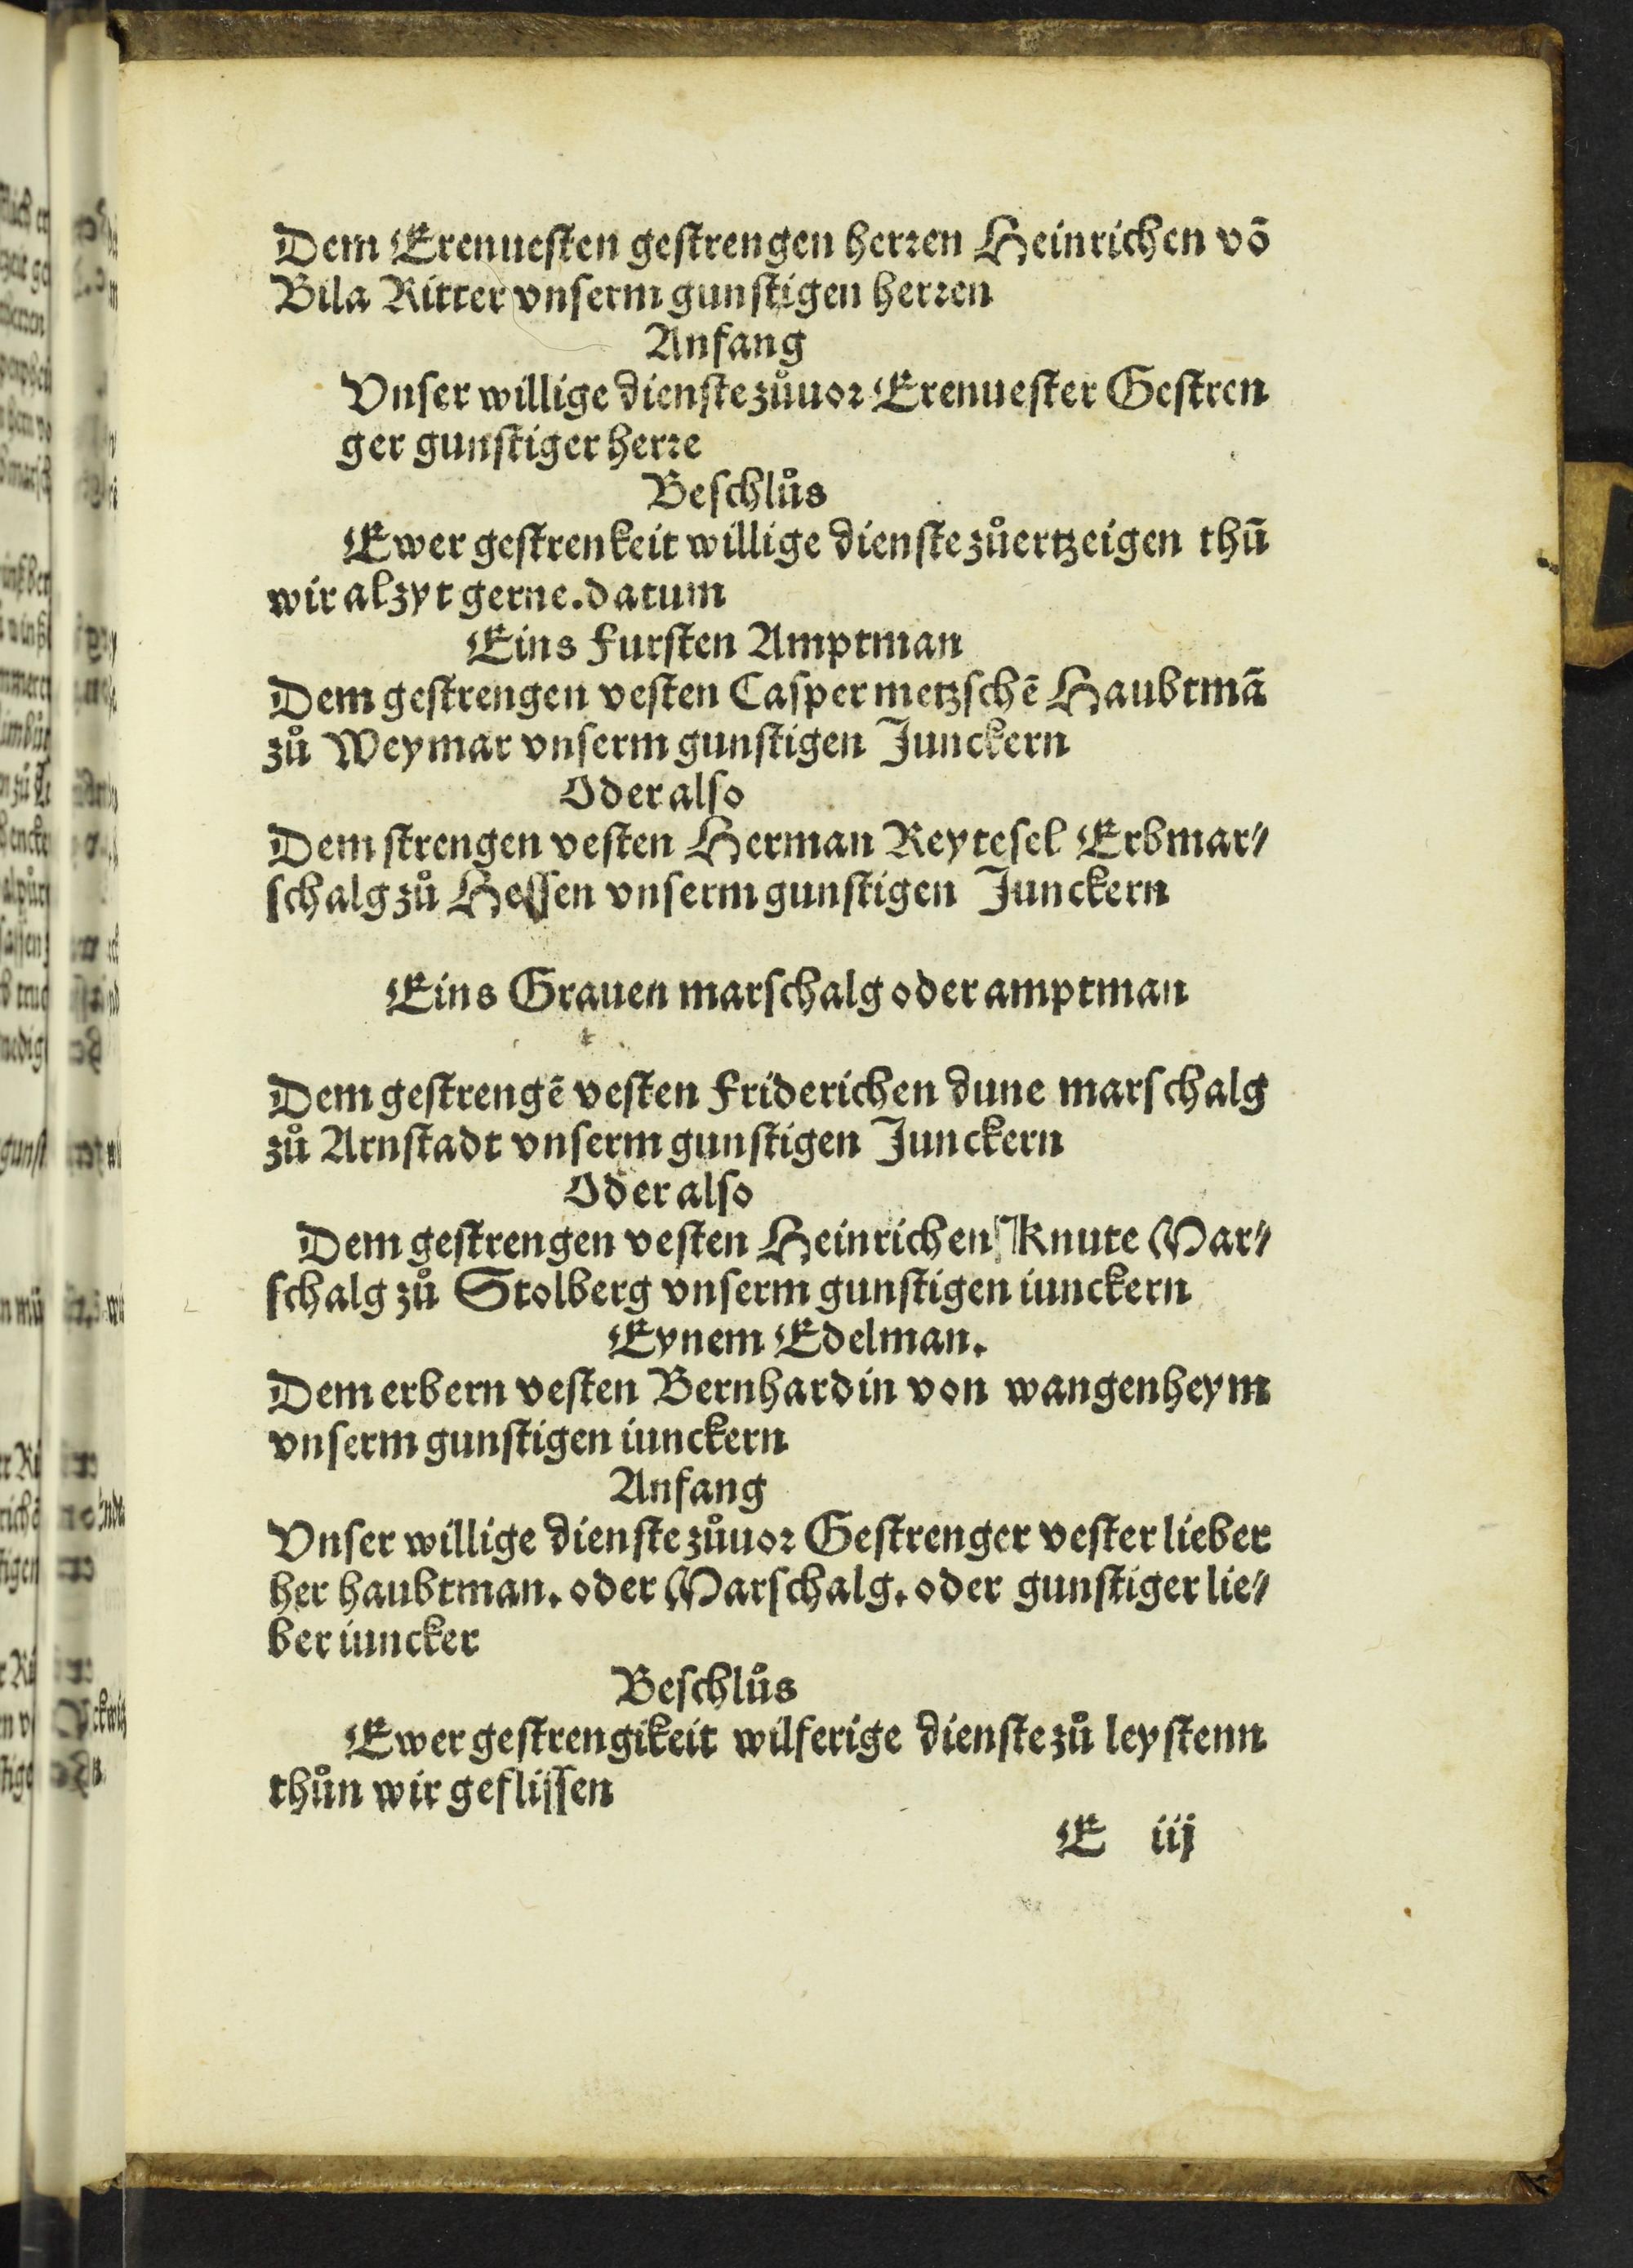 Dem Erenuesten gestrengen herren Heinrichen võ
Bila Ritter vnserm gunstigen herren
Anfang
Vnser willige dienste zůuor Erenuester Gestren
ger gunstiger herre
Beschlůs
Ewer gestrenkeit willige dienste zůertzeigen thū
wir alzyt gerne. datum
Eins Fursten Amptman
Dem gestrengen vesten Casper metzschē Haubtmā
zů Weymar vnserm gunstigen Junckern
Oder also
Dem strengen vesten Herman Reytesel Erbmar⸗
schalg zů Hessen vnserm gunstigen Junckern
Eins Grauen marschalg oder amptman
Dem gestrengē vesten Friderichen dune marschalg
zů Arnstadt vnserm gunstigen Junckern
Oder also
Dem gestrengen vesten Heinrichen Knute Mar⸗
schalg zů Stolberg vnserm gunstigen iunckern
Eynem Edelman.
Dem erbern vesten Bernhardin von wangenheym
vnserm gunstigen iunckern
Anfang
Vnser willige dienste zůuor Gestrenger vester lieber
her haubtman. oder Marschalg. oder gunstiger lie⸗
ber iuncker
Beschlůs
Ewer gestrengikeit wilferige dienste zů leystenn
thůn wir geflissen
E iij